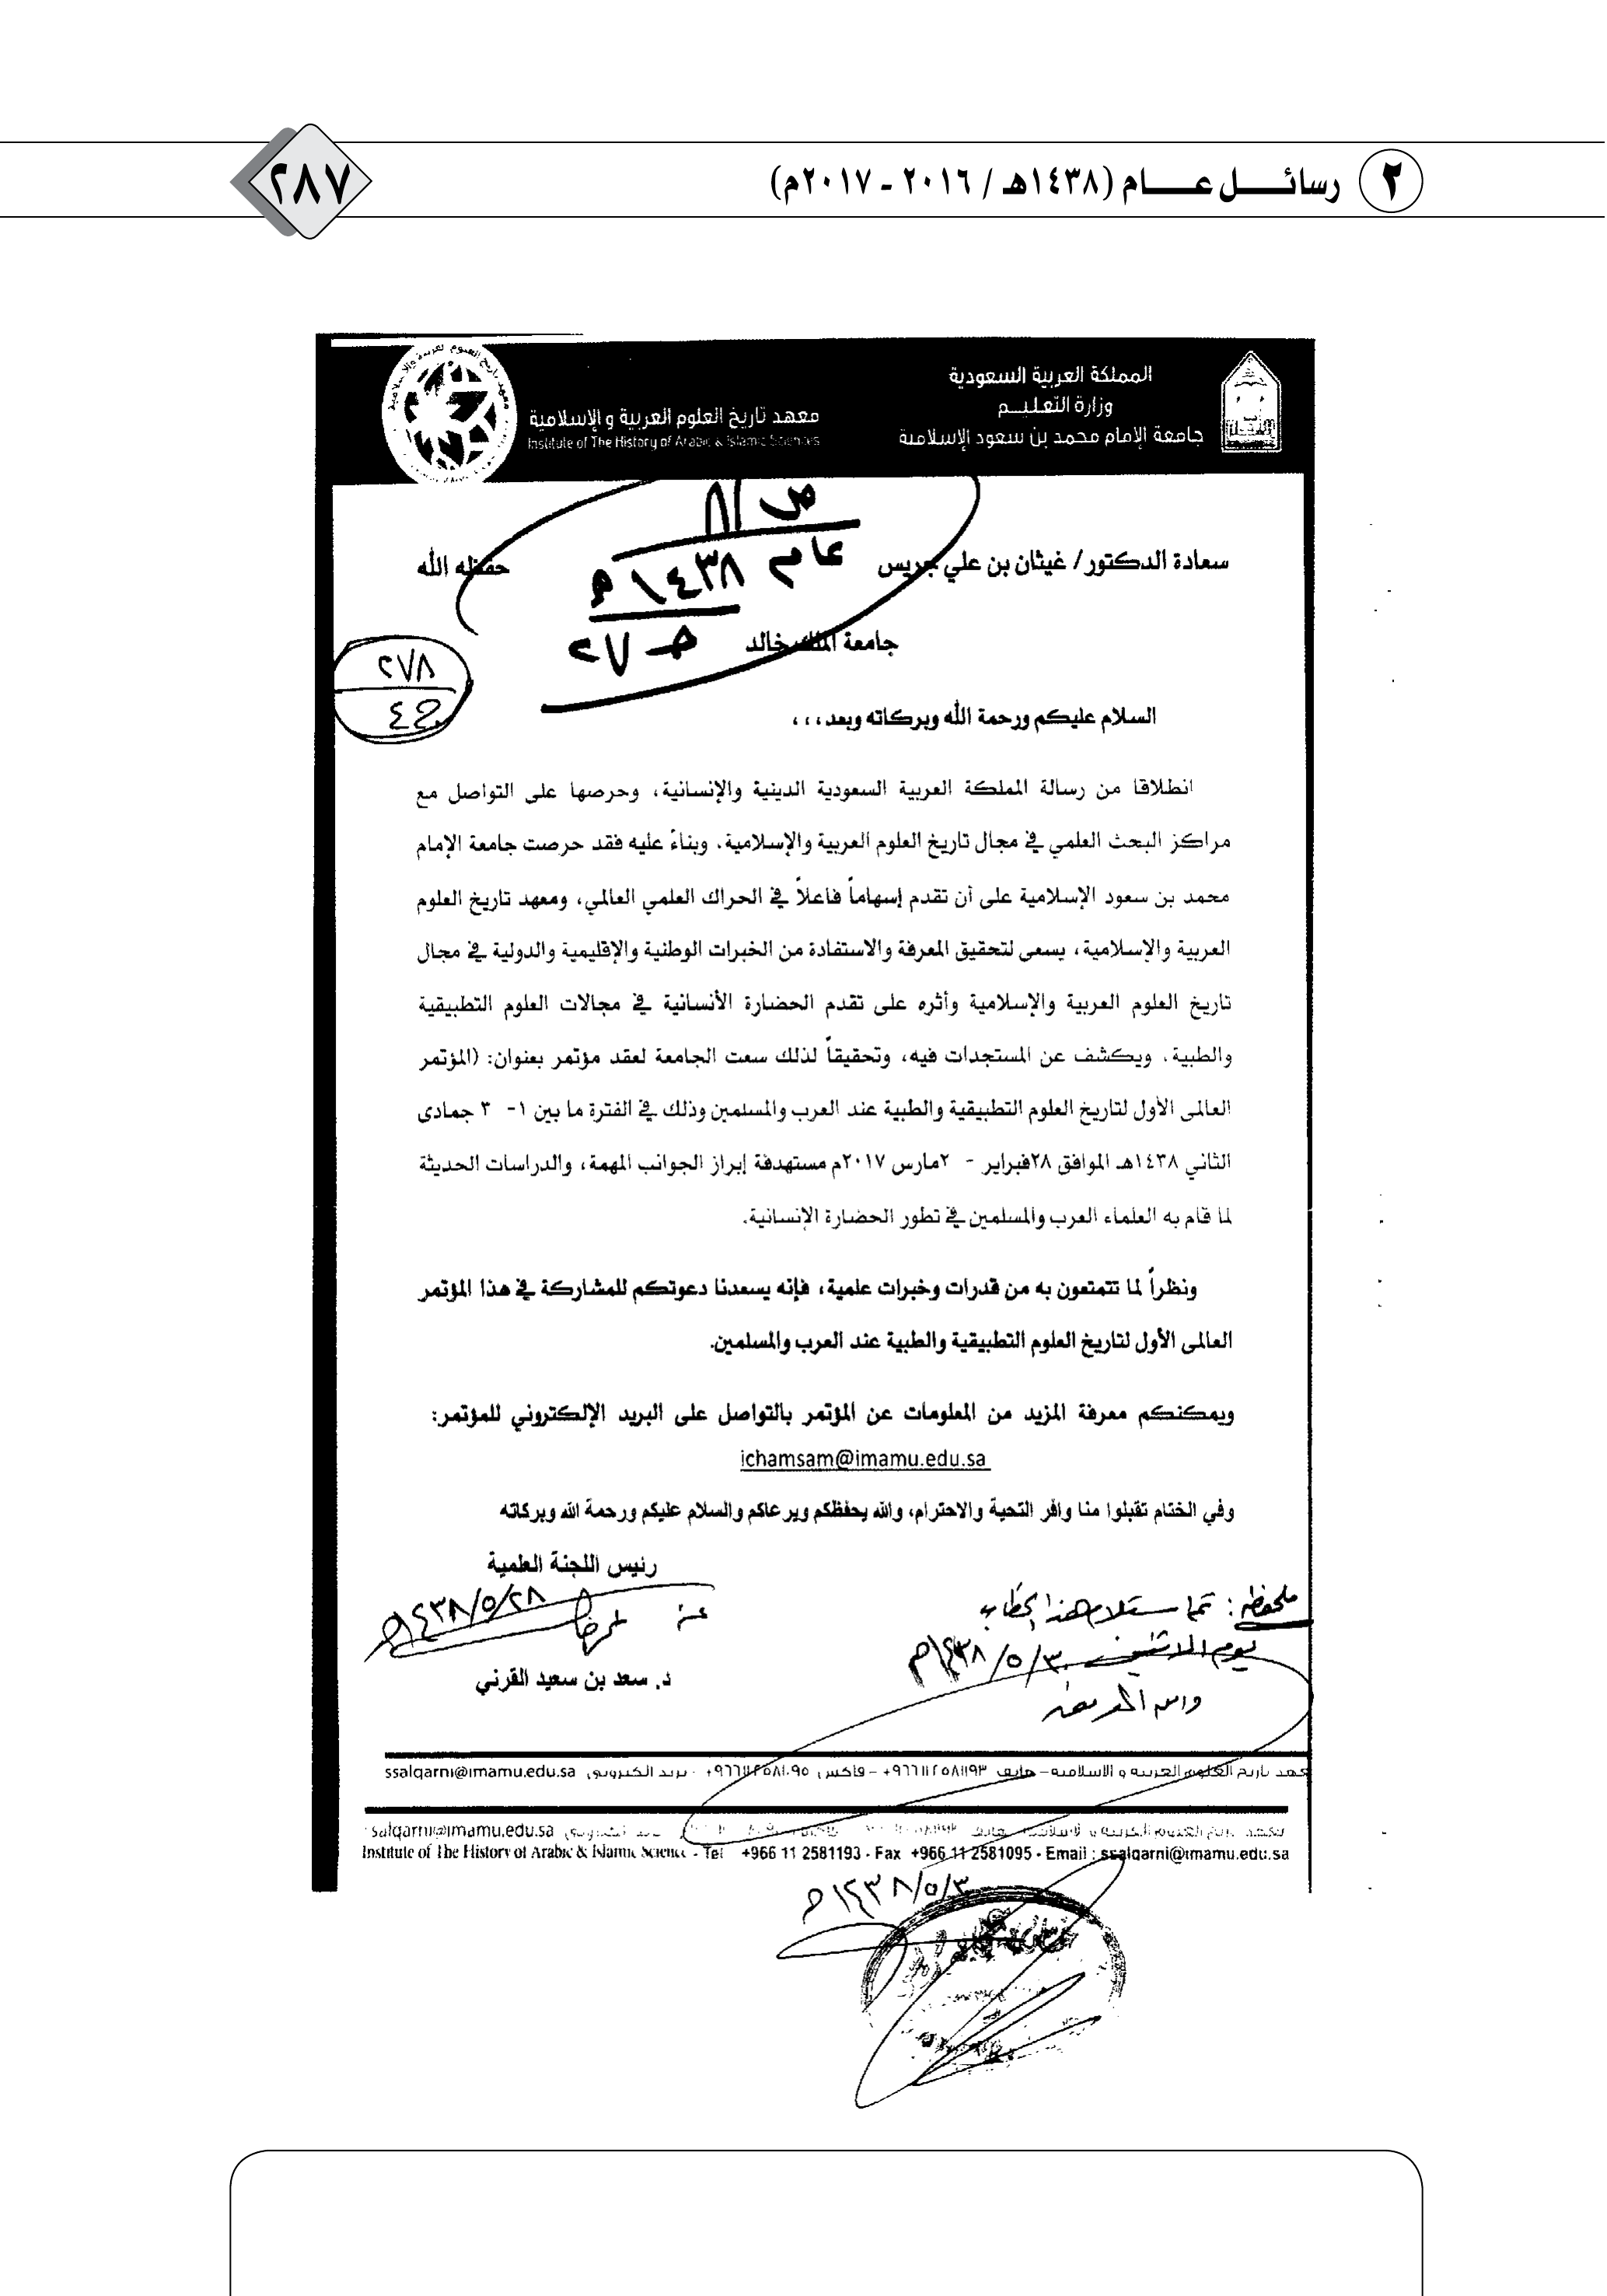 ٢ رسائل عام (١٤٣٨هـ / ٢٠١٦ - ٢٠١٧م)
٢٨٧
المملكة العربية السعودية
وزارة التعليم
جامعة الإمام محمد بن سعود الإسلامية
معهد تاريخ العلوم العربية والإسلامية
Institute of The History of Arabic & Islamic Sciences
عام ١٤٣٨هـ
سعادة الدكتور/ غيثان بن علي جريس حفظه الله
جامعة الملك خالد
٢٧٨
السلام عليكم ورحمة الله وبركاته وبعد،،،
انطلاقا من رسالة المملكة العربية السعودية الدينية والإنسانية، وحرصها على التواصل مع
مراكز البحث العلمي في مجال تاريخ العلوم العربية والإسلامية. وبناءً عليه فقد حرصت جامعة الإمام
محمد بن سعود الإسلامية على أن تقدم إسهاماً فاعلاً في الحراك العلمي العالمي، ومعهد تاريخ العلوم
العربية والإسلامية، يسعى لتحقيق المعرفة والاستفادة من الخبرات الوطنية والإقليمية والدولية في مجال
تاريخ العلوم العربية والإسلامية وأثره على تقدم الحضارة الأنسانية في مجالات العلوم التطبيقية
والطبية. ويكشف عن المستجدات فيه، وتحقيقاً لذلك سعت الجامعة لعقد مؤتمر بعنوان: (المؤتمر
العالمى الأول لتاريخ العلوم التطبيقية والطبية عند العرب والمسلمين وذلك في الفترة ما بين ١- ٣ جمادى
الثاني ١٤٣٨هـ الموافق ٢٨فبراير - ٢مارس ٢٠١٧م مستهدفة إبراز الجوانب المهمة، والدراسات الحديثة
لما قام به العلماء العرب والمسلمين في تطور الحضارة الإنسانية.
ونظراً لما تتمتعون به من قدرات وخبرات علمية، فإنه يسعدنا دعوتكم للمشاركة في هذا المؤتمر
العالمى الأول لتاريخ العلوم التطبيقية والطبية عند العرب والمسلمين.
ويمكنكم معرفة المزيد من المعلومات عن المؤتمر بالتواصل على البريد الإلكتروني للمؤتمر:
ichamsam@imamu.edu.sa
وفي الختام تقبلوا منا وافر التحية والاحترام، والله يحفظكم ويرعاكم والسلام عليكم ورحمة الله وبركاته
رئيس اللجنة العلمية
١٤٣٨/٥/٢٨هـ
د. سعد بن سعيد القرني
ملحوظة: تم استلام هذا الخطاب
يوم الاثنين ١٤٣٨/٥/٣٠هـ
والله الموفق
معهد تاريخ العلوم العربية و الاسلامية – هاتف ٩٦٦١١٢٥٨١١٩٣+ – فاكس ٩٦٦١١٢٥٨١٠٩٥+ - بريد الكتروني ssalqarni@imamu.edu.sa
salqarni@imamu.edu.sa
Institute of The History of Arabic & Islamic Science - Tel +966 11 2581193 - Fax +966 11 2581095 - Email : ssalqarni@imamu.edu.sa